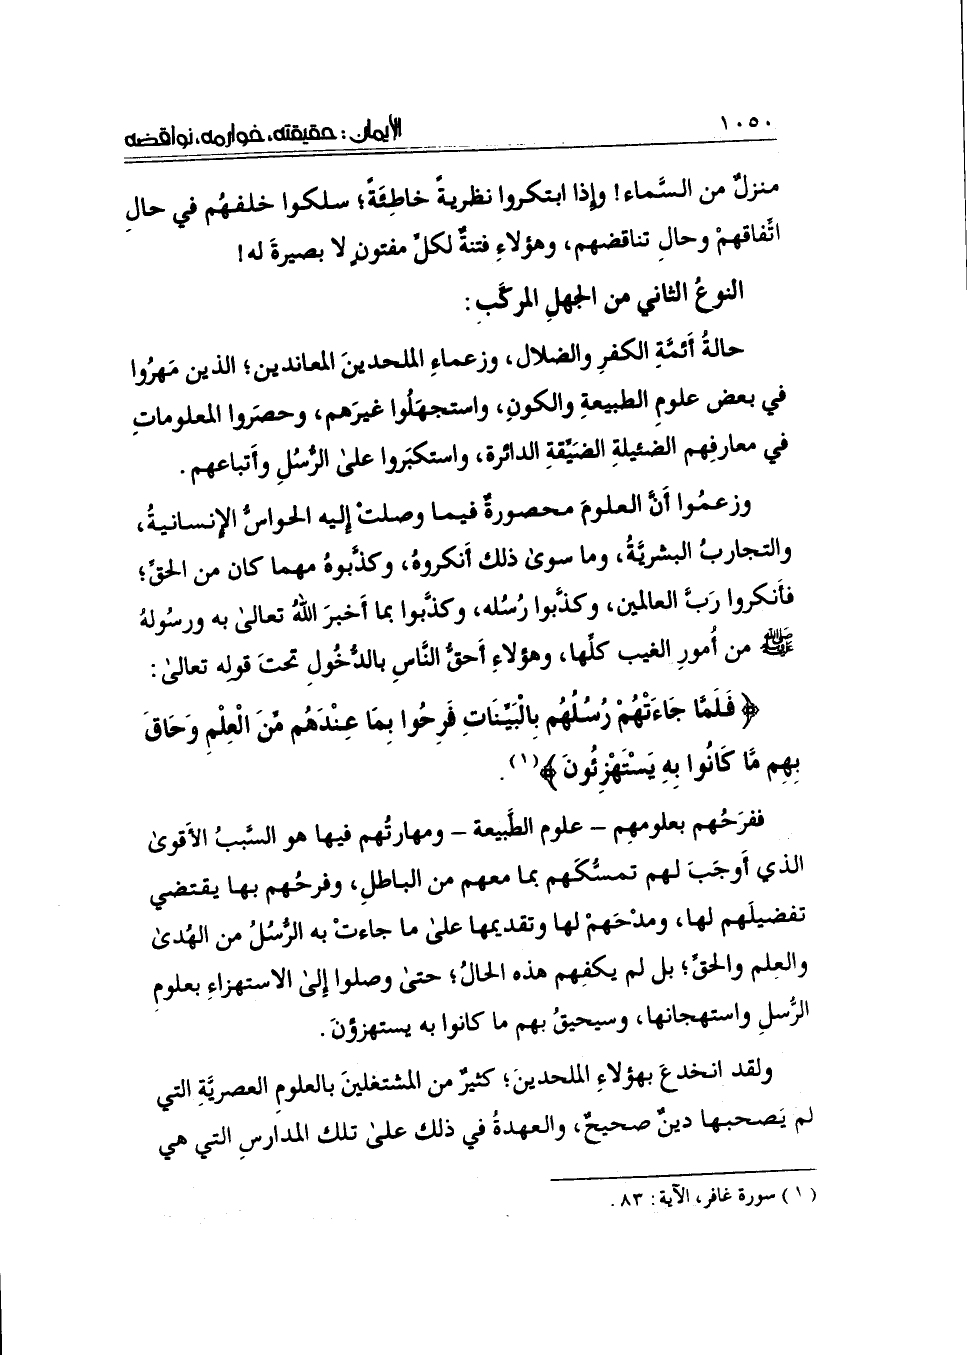 ١٠٥٠ الإيمان: حقيقته، خوارمه، نواقضه
منزلٌ من السَّماء! وإذا ابتكروا نظريةً خاطِئَةً؛ سلكوا خلفهُم في حالِ
اتِّفاقهمْ وحالِ تناقضهم، وهؤلاءِ فتنةٌ لكلِّ مفتونٍ لا بصيرةَ له!
النوعُ الثاني من الجهلِ المركَّبِ:
حالةُ أئمَّةِ الكفرِ والضلال، وزعماءِ الملحدينَ المعاندين؛ الذين مَهرُوا
في بعض علومِ الطبيعةِ والكونِ، واستجهَلُوا غيرَهم، وحصَروا المعلوماتِ
في معارفِهم الضئيلةِ الضيِّقةِ الدائرة، واستكبَروا علىٰ الرُّسُلِ وأتباعهم.
وزعمُوا أنَّ العلومَ محصورةٌ فيما وصلتْ إليه الحواسُّ الإنسانيةُ،
والتجاربُ البشريَّةُ، وما سوىٰ ذلك أنكروهُ، وكذَّبوهُ مهما كان من الحقِّ؛
فأنكروا رَبَّ العالمين، وكذَّبوا رُسُله، وكذَّبوا بما أخبرَ اللهُ تعالىٰ به ورسُولهُ
ﷺ من أمورِ الغيب كلِّها، وهؤلاءِ أحقُّ النَّاسِ بالدُّخُولِ تحتَ قوله تعالىٰ:
﴿فَلَمَّا جَاءَتْهُمْ رُسُلُهُم بِالْبَيِّنَاتِ فَرِحُوا بِمَا عِنْدَهُم مِّنَ الْعِلْمِ وَحَاقَ
بِهِم مَّا كَانُوا بِهِ يَسْتَهْزِئُونَ﴾(١).
ففرَحُهم بعلومهِم – علوم الطَّبيعة – ومهارتُهم فيها هو السَّببُ الأقوىٰ
الذي أوجَبَ لهم تمسُّكَهم بما معهم من الباطلِ، وفرحُهم بها يقتضي
تفضيلَهم لها، ومدْحَهمْ لها وتقديمها علىٰ ما جاءتْ به الرُّسُلُ من الهُدىٰ
والعِلم والحقِّ؛ بل لم يكفِهم هذه الحالُ؛ حتىٰ وصلوا إلىٰ الاستهزاءِ بعلومِ
الرُّسلِ واستهجانها، وسيحيقُ بهم ما كانوا به يستهزؤنَ.
ولقد انخدعَ بهؤلاءِ الملحدينَ؛ كثيرٌ من المشتغلينَ بالعلومِ العصريَّةِ التي
لم يَصحبها دينٌ صحيحٌ، والعهدةُ في ذلك علىٰ تلك المدارس التي هي
(١) سورة غافر، الآية: ٨٣.